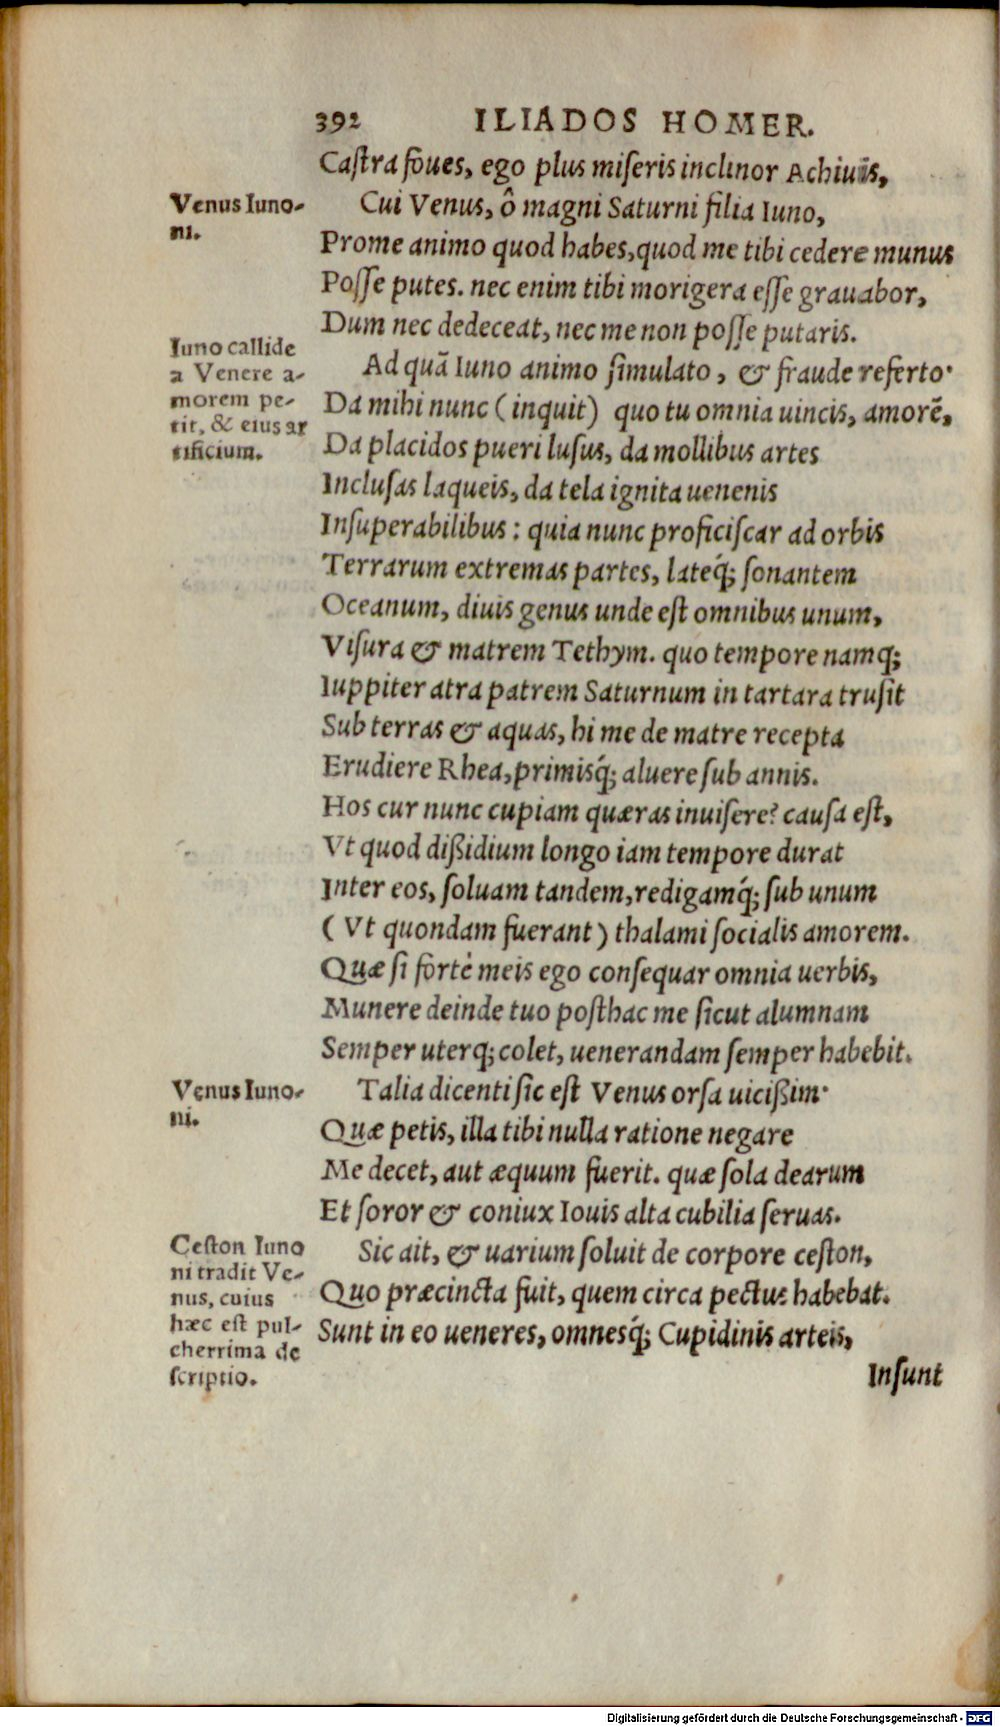 392 ILIADOS HOMER.
Castra foues, ego plus miseris inclinor Achiuis,
Venus Iuno-
ni.
Cui Venus, ô magni Saturni filia Iuno,
Prome animo quod habes, quod me tibi cedere munus
Posse putes. nec enim tibi morigera esse grauabor,
Dum nec dedeceat, nec me non posse putaris.
Iuno callide
a Venere a-
morem pe-
tit, & eius ar
tificium.
Ad quã Iuno animo simulato, & fraude referto.
Da mihi nunc (inquit) quo tu omnia uincis, amorẽ,
Da placidos pueri lusus, da mollibus artes
Inclusas laqueis, da tela ignita uenenis
Insuperabilibus: quia nunc proficiscar ad orbis
Terrarum extremas partes, lateq́; sonantem
Oceanum, diuis genus unde est omnibus unum,
Visura & matrem Tethym. quo tempore namq;
Iuppiter atra patrem Saturnum in tartara trusit
Sub terras & aquas, hi me de matre recepta
Erudiere Rhea, primisq́; aluere sub annis.
Hos cur nunc cupiam quæras inuisere? causa est,
Vt quod dißidium longo iam tempore durat
Inter eos, soluam tandem, redigamq́; sub unum
(Vt quondam fuerant) thalami socialis amorem.
Quæ si fortè meis ego consequar omnia uerbis,
Munere deinde tuo posthac me sicut alumnam
Semper uterq; colet, uenerandam semper habebit.
Venus Iuno-
ni.
Talia dicenti sic est Venus orsa uicißim.
Quæ petis, illa tibi nulla ratione negare
Me decet, aut æquum fuerit. quæ sola dearum
Et soror & coniux Iouis alta cubilia seruas.
Ceston Iuno
ni tradit Ve-
nus, cuius
hæc est pul-
cherrima de
scriptio.
Sic ait, & uarium soluit de corpore ceston,
Quo præcincta fuit, quem circa pectus habebat.
Sunt in eo ueneres, omnesq́; Cupidinis arteis,
Insunt
Digitalisierung gefördert durch die Deutsche Forschungsgemeinschaft - DFG